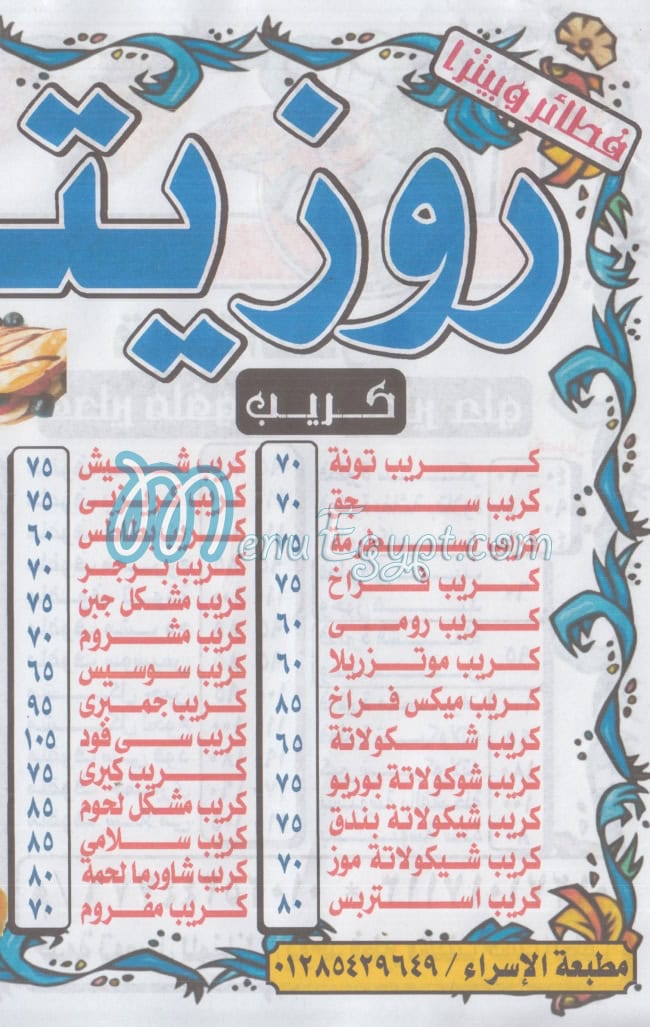 فطائر وبيتزا
روزيتـ
كريب
كريب تونة ٧٠
كريب سجق ٧٠
كريب بسطرمة ٧٠
كريب فراخ ٧٥
كريب رومى ٦٠
كريب موتزريلا ٦٠
كريب ميكس فراخ ٨٥
كريب شكولاتة ٦٥
كريب شوكولاتة بوريو ٧٥
كريب شيكولاتة بندق ٧٥
كريب شيكولاتة موز ٧٠
كريب استربس ٨٠
كريب شيش ٧٥
كريب كرسبى ٧٥
كريب بطاطس ٦٠
كريب برجر ٧٠
كريب مشكل جبن ٧٥
كريب مشروم ٧٠
كريب سوسيس ٦٥
كريب جمبرى ٩٥
كريب سى فود ١٠٥
كريب كيرى ٧٥
كريب مشكل لحوم ٨٥
كريب سلامي ٨٥
كريب شاورما لحمة ٨٠
كريب مفروم ٧٠
MenuEgypt.com
مطبعة الإسراء / ٠١٢٨٥٤٢٩٦٤٩